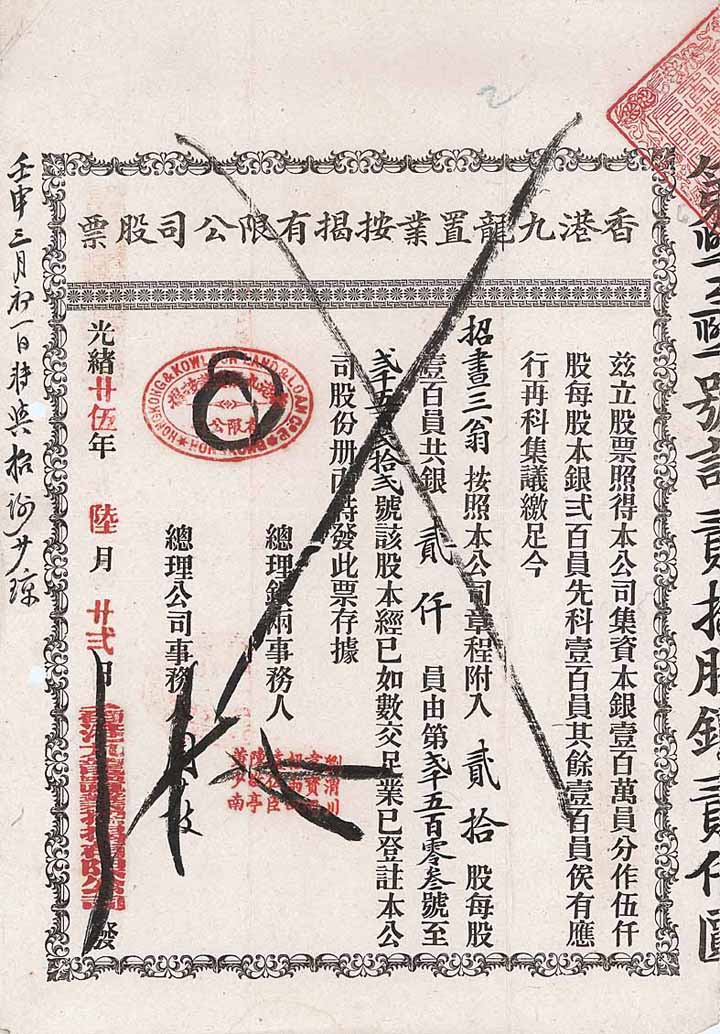 香港九龍置業按揭有限公司股票
茲立股票照得本公司集資本銀壹百萬員分作伍仟
股每股本銀弍百員先科壹百員其餘壹百員俟有應
行再科集議繳足今
招畫三翁 按照本公司章程附入 貳拾 股每股
壹百員共銀 貳仟 員由第弍千五百零叁號至
弍千五百弍拾弍號該股本經已如數交足業已登註本公
司股份册內特發此票存據
總理銀兩事務人
總理公司事務人
HONGKONG & KOWLOON LAND & LOAN CO. LD.
HONGKONG
光緒廿伍年 陸月 廿弍日 香港九龍置業按揭有限公司 發
壬申三月初一日特與招